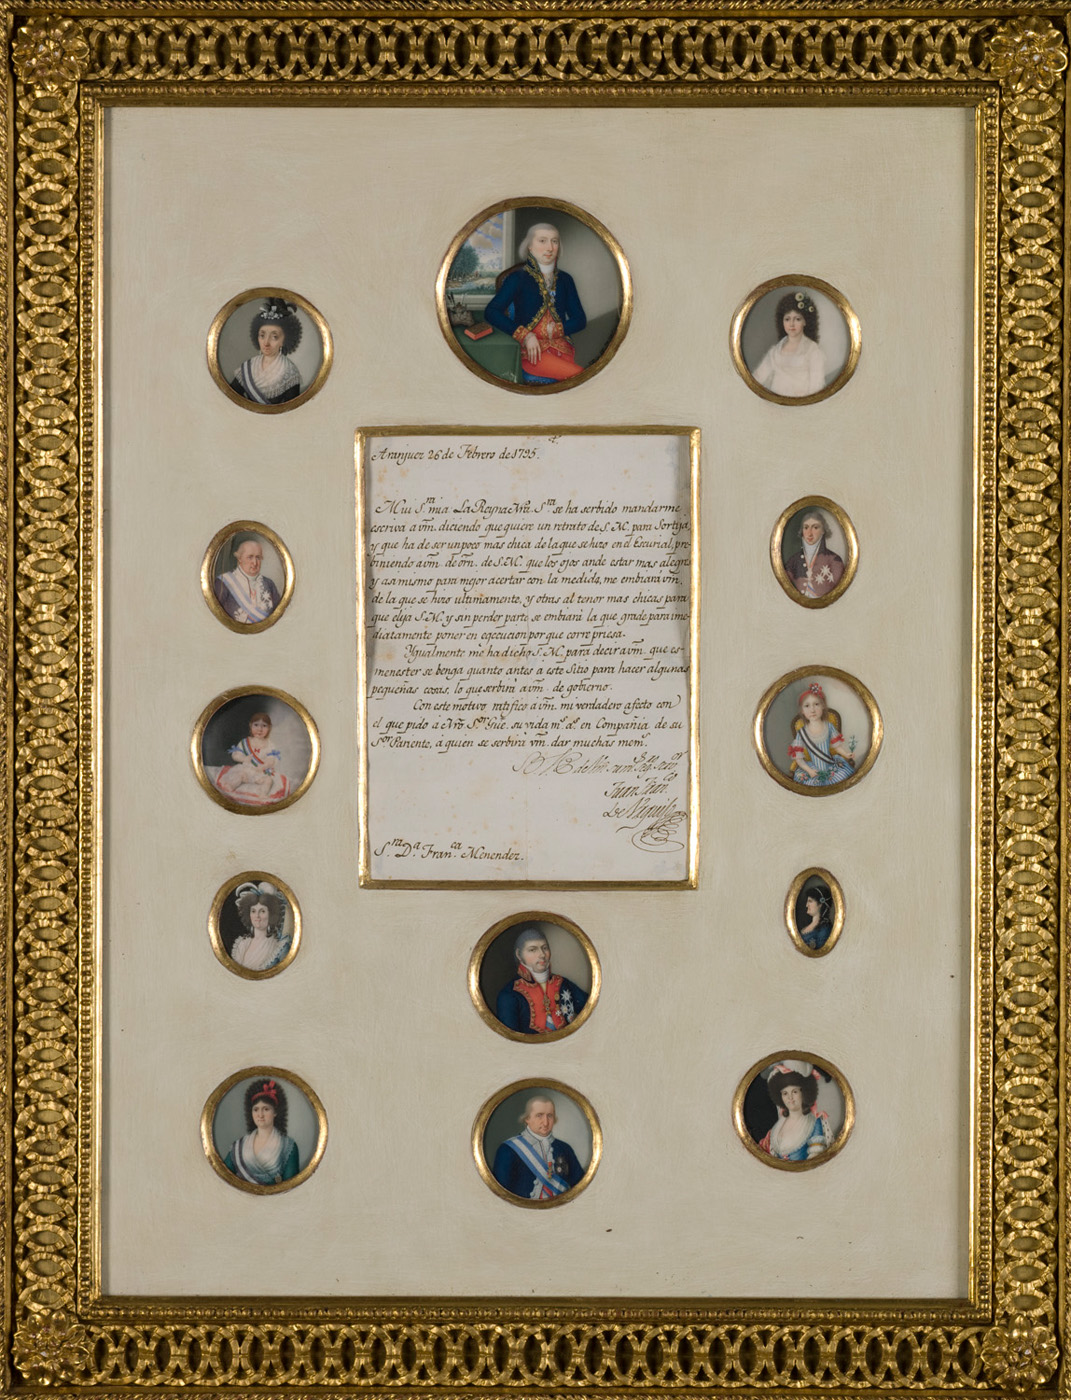 Aranjuez 26 de Febrero de 1795.
Mui S.ra mia La Reyna Nra. S.ra se ha serbido mandarme
escriva a vm. diciendo que quiere un retrato de S. M. para Sortija,
y que ha de ser un poco mas chica de la que se hizo en el Escurial, pre-
biniendo a vm. de orn. de S. M. que los ojos ande estar mas alegres
y asi mismo para mejor acertar con la medida, me embiará vm.
de la que se hizo ultimamente, y otras al tenor mas chicas para
que elija S. M. y sin perder parte se embiará la que grade para ime-
diatamente poner en egecucion por que corre priesa.
Ygualmente me ha dicho S. M. para decir a vm. que es-
menester se benga quanto antes a este Sitio para hacer algunas
pequeñas cosas, lo que serbirá a vm. de gobierno.
Con este motivo ratifico a vm. mi verdadero afecto con
el que pido a Nro. S.or Gue. su vida m.s a.s en Compañia de su
S.or Pariente, á quien se serbirá vm. dar muchas mem.s
Juan Fran.co
S.ra D.a Fran.ca Menendez.